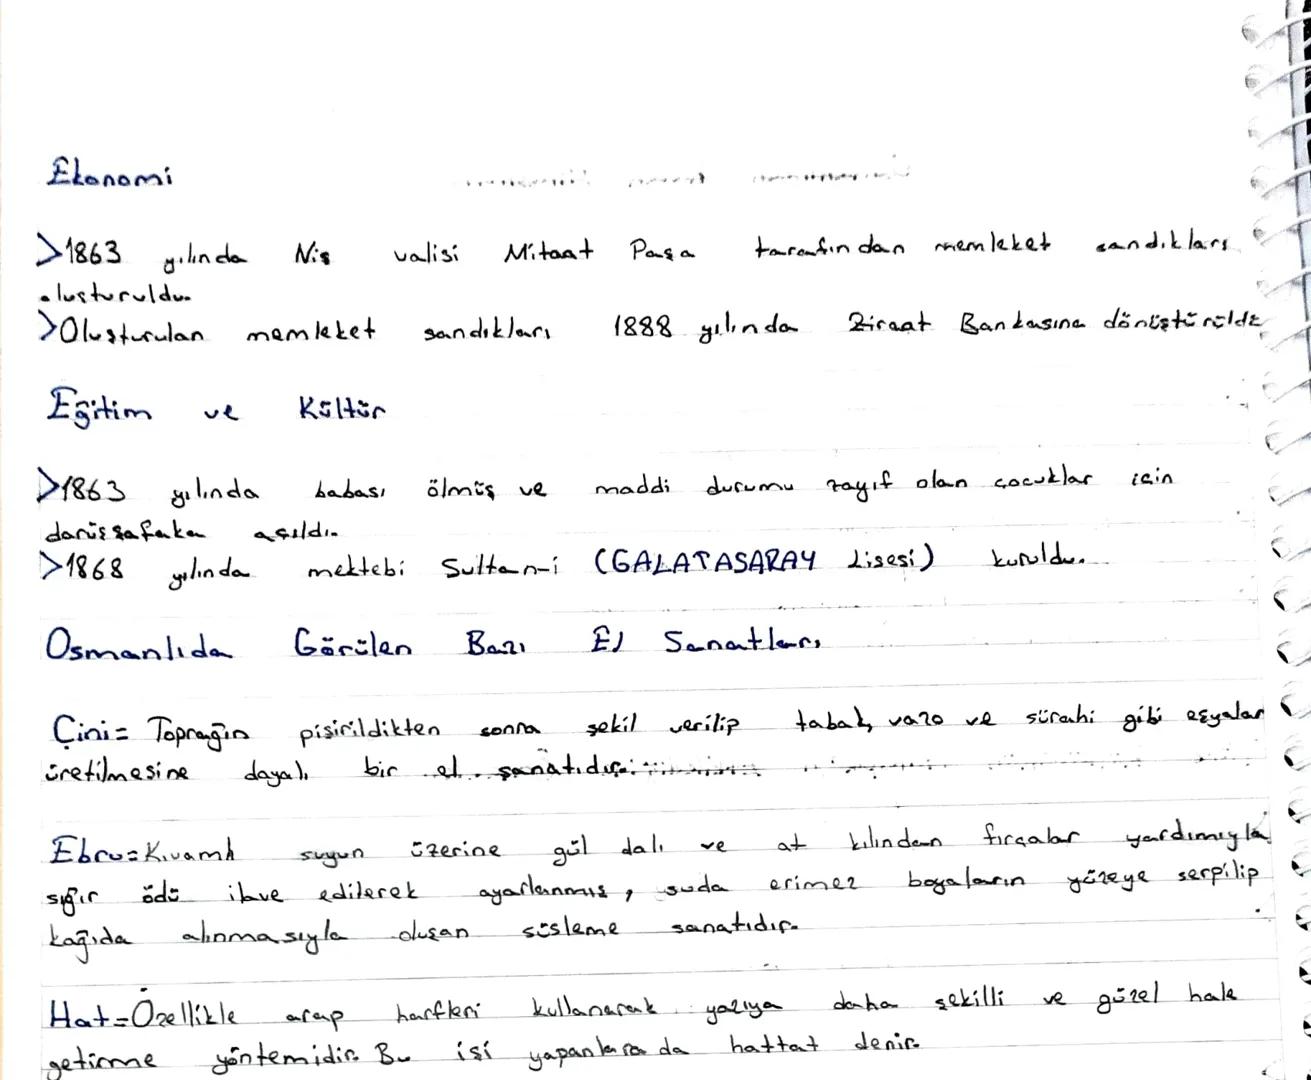 Ekonomi
>1863 yılında Niş valisi Mitaat Paşa tarafından memleket sandıkları
oluşturuldu.
>Oluşturulan memleket sandıkları 1888 yılında Ziraat Bankasına dönüştürüldü
Eğitim ve Kültür
>1863 yılında babası ölmüş ve maddi durumu zayıf olan çocuklar için
darüşşafaka açıldı.
>1868 yılında mektebi Sultan-i (GALATASARAY Lisesi) kuruldu.
Osmanlıda Görülen Bazı El Sanatları
Çini= Toprağın pişirildikten sonra şekil verilip tabak, vazo ve sürahi gibi eşyalar
üretilmesine dayalı bir el sanatıdır.
Ebru=Kıvamlı suyun üzerine gül dalı ve at kılından fırçalar yardımıyla
sığır ödü ilave edilerek ayarlanmış, suda erimez boyaların yüzeye serpilip
kağıda alınmasıyla oluşan süsleme sanatıdır.
Hat=Özellikle arap harfleri kullanarak yazıya daha şekilli ve güzel hale
getirme yöntemidir. Bu işi yapanlara da hattat denir.